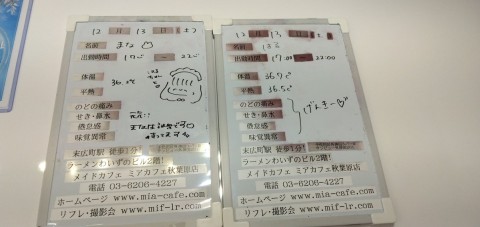 12 月 13 日 土
名前 まな
出勤時間 17:00 － 22:00
体温 36.5℃
平熱
のどの痛み
せき・鼻水
倦怠感
味覚異常
末広町駅 徒歩1分!
ラーメンわいずのビル2階!
メイドカフェ ミアカフェ秋葉原店
電話 03-6206-4227
ホームページ www.mia-cafe.com
リフレ・撮影会 www.mif-lr.com
12 月 13 日 土
名前
出勤時間 17:00 － 22:00
体温 36.7℃
平熱 36.5℃
のどの痛み
せき・鼻水
倦怠感
味覚異常
げんきー
末広町駅 徒歩1分!
ラーメンわいずのビル2階!
メイドカフェ ミアカフェ秋葉原店
電話 03-6206-4227
ホームページ www.mia-cafe.com
リフレ・撮影会 www.mif-lr.com